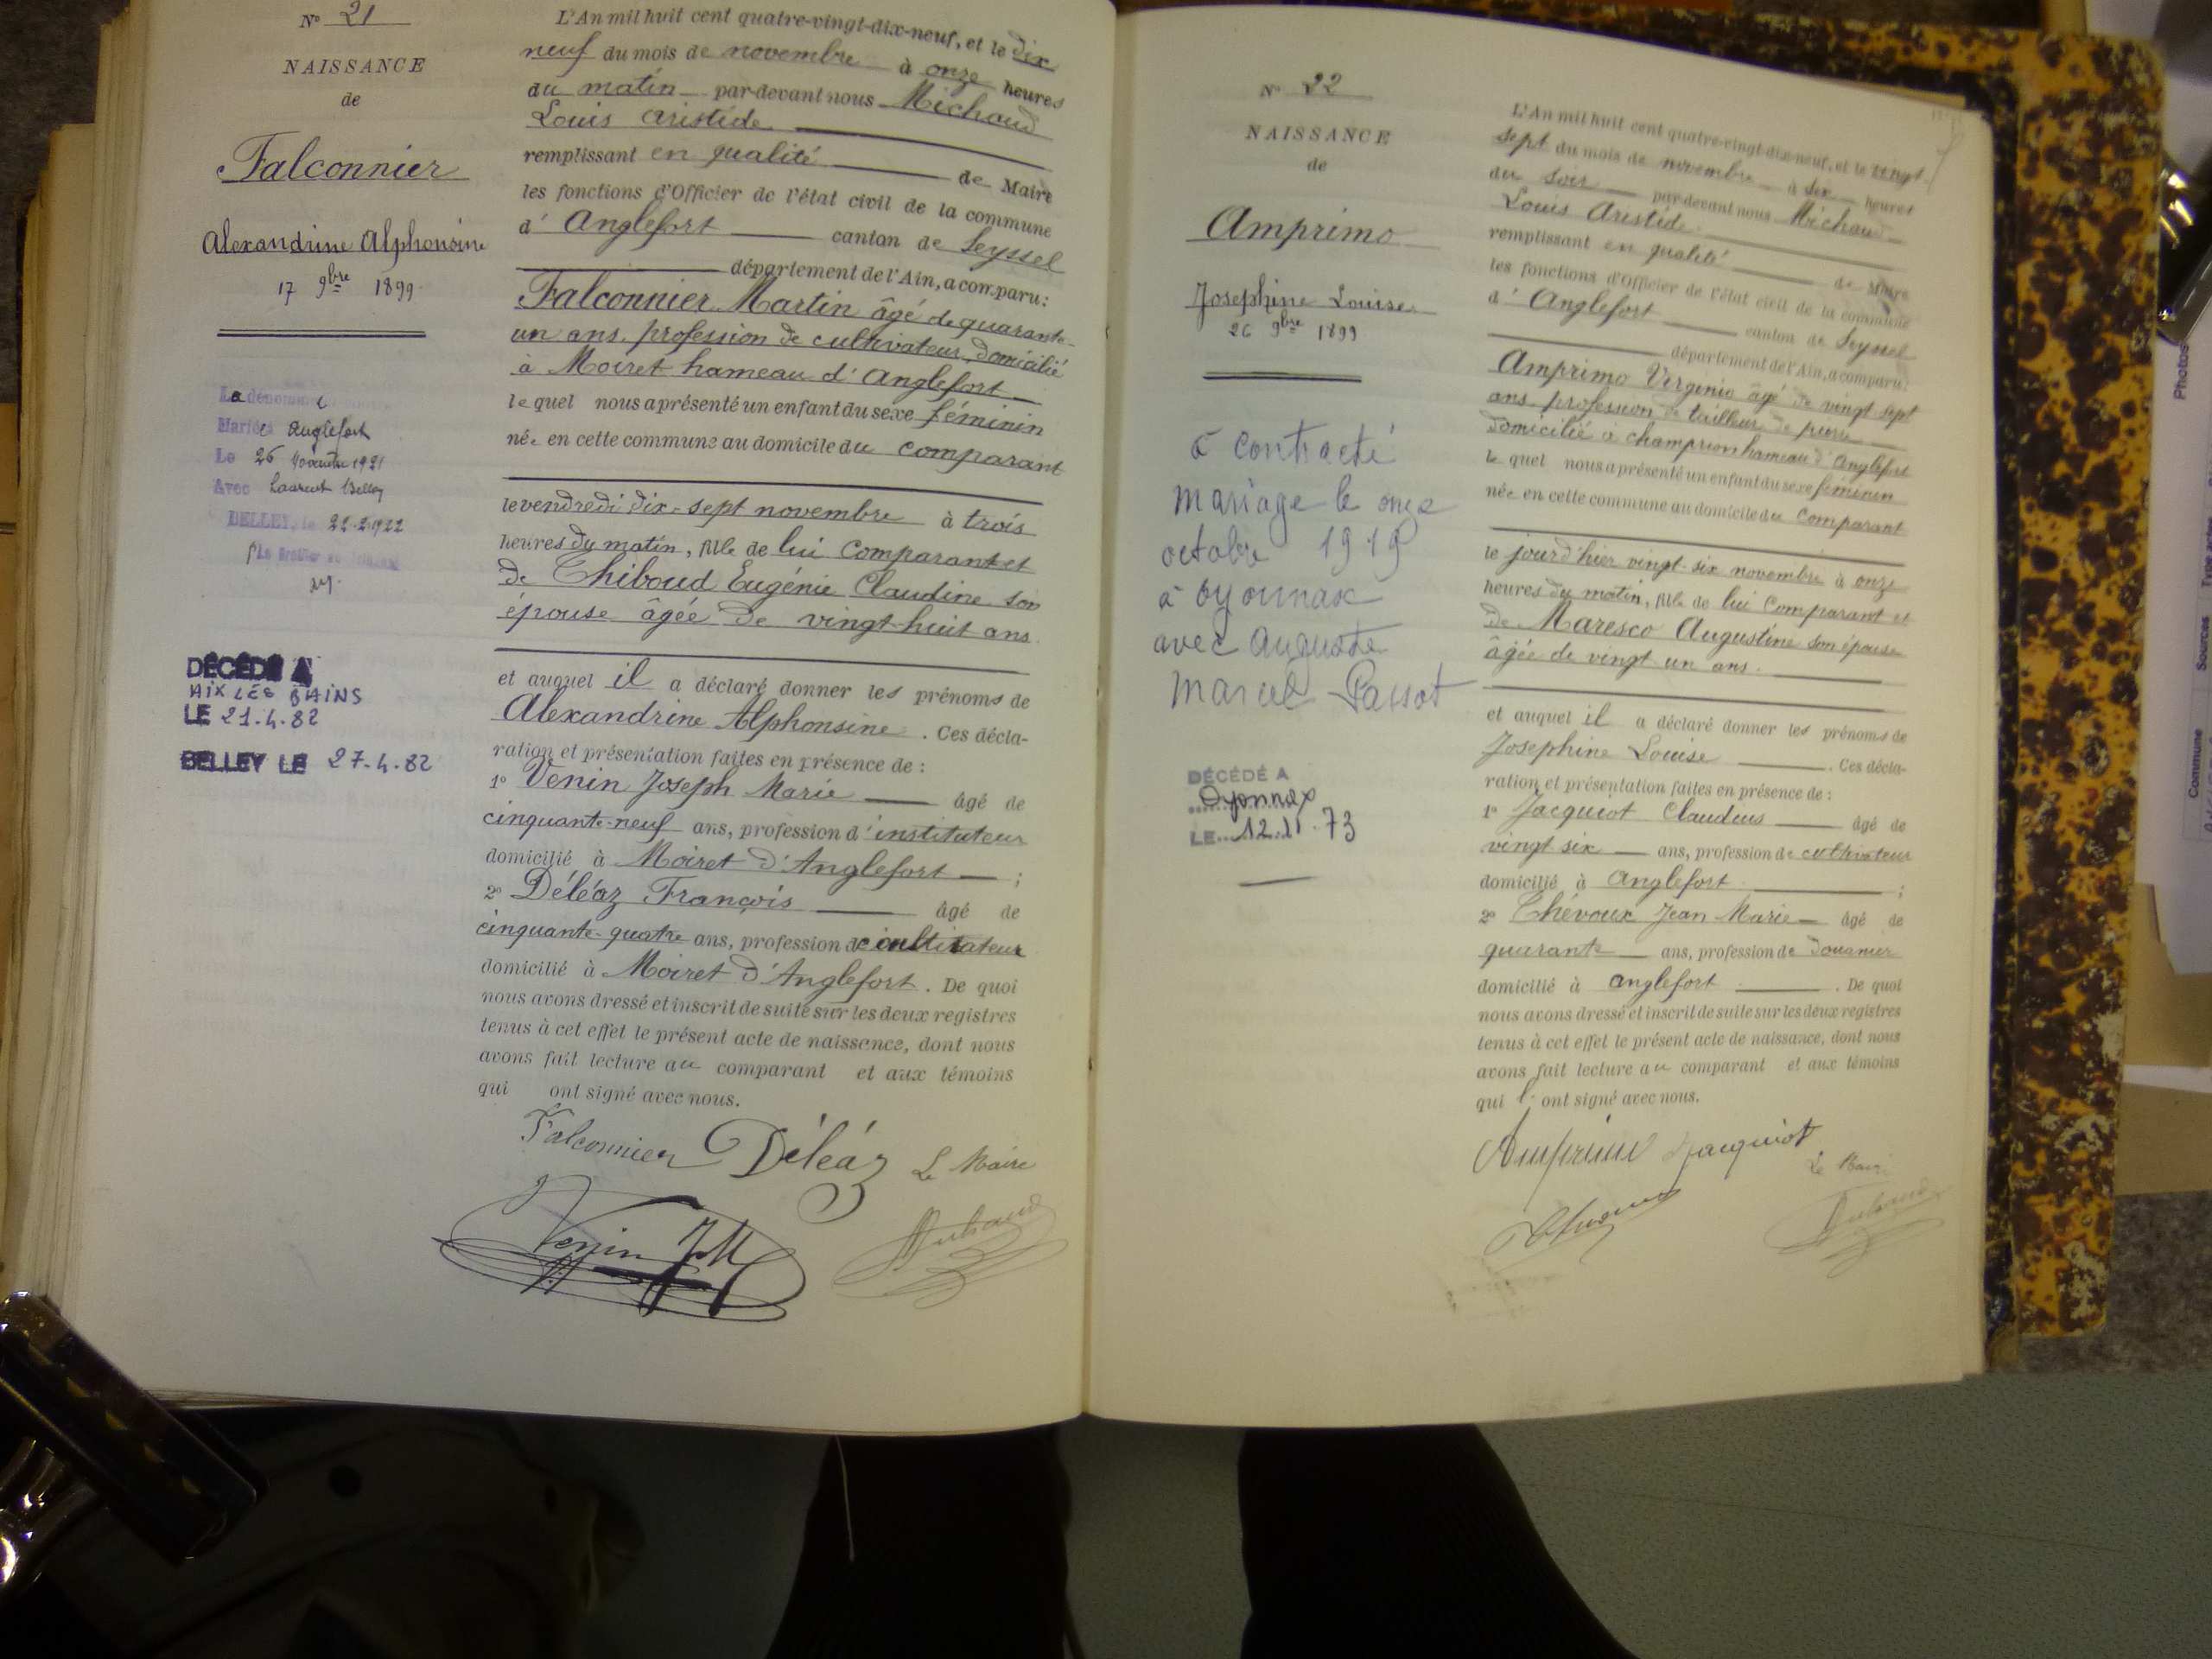 N° 21
NAISSANCE
de
Falconnier
Alexandrine Alphonsine
17 9bre 1899
La dénommée
Mariée Anglefort
Le 26 Novembre 1921
Avec Laurent Belley
BELLEY, le 22-2-1922
DÉCÉDÉ A
AIX LES BAINS
LE 21.4.82
BELLEY LE 27.4.82
L'An mil huit cent quatre-vingt-dix-neuf, et le dix
neuf du mois de novembre à onze heures
du matin par-devant nous Michaud
Louis Aristide
remplissant en qualité de Maire
les fonctions d'Officier de l'état civil de la commune
d' Anglefort canton de Seyssel
département de l'Ain, a comparu:
Falconnier Martin âgé de quarante-
un ans, profession de cultivateur, domicilié
à Moiret hameau d'Anglefort
lequel nous a présenté un enfant du sexe féminin
née en cette commune au domicile du comparant
le vendredi dix-sept novembre à trois
heures du matin, fille de lui comparant et
de Thiboud Eugénie Claudine son
épouse âgée de vingt-huit ans
et auquel il a déclaré donner les prénoms de
Alexandrine Alphonsine. Ces décla-
ration et présentation faites en présence de :
1° Venin Joseph Marie âgé de
cinquante-neuf ans, profession d'instituteur
domicilié à Moiret d'Anglefort ;
2° Déléaz François âgé de
cinquante-quatre ans, profession de cultivateur
domicilié à Moiret d'Anglefort. De quoi
nous avons dressé et inscrit de suite sur les deux registres
tenus à cet effet le présent acte de naissance, dont nous
avons fait lecture au comparant et aux témoins
qui ont signé avec nous.
Falconnier Déléaz Le Maire
Venin JM Michaud
N° 22
NAISSANCE
de
Amprimo
Josephine Louise
26 9bre 1899
a contracté
mariage le onze
octobre 1919
à Oyonnax
avec Auguste
Marcel Passot
DÉCÉDÉ A
Oyonnax
LE 12.11.73
L'An mil huit cent quatre-vingt-dix-neuf, et le vingt-
sept du mois de novembre à six heures
du soir par-devant nous Michaud
Louis Aristide
remplissant en qualité de Maire
les fonctions d'Officier de l'état civil de la commune
d' Anglefort canton de Seyssel
département de l'Ain, a comparu:
Amprimo Virginio âgé de vingt sept
ans, profession de tailleur de pierre
domicilié à Champrion hameau d'Anglefort
lequel nous a présenté un enfant du sexe féminin
née en cette commune au domicile du comparant
le jour d'hier vingt-six novembre à onze
heures du matin, fille de lui comparant et
de Maresco Augustine son épouse
âgée de vingt un ans.
et auquel il a déclaré donner les prénoms de
Josephine Louise. Ces décla-
ration et présentation faites en présence de :
1° Jacquiot Claudius âgé de
vingt six ans, profession de cultivateur
domicilié à Anglefort ;
2° Thévoux Jean Marie âgé de
quarante ans, profession de douanier
domicilié à Anglefort. De quoi
nous avons dressé et inscrit de suite sur les deux registres
tenus à cet effet le présent acte de naissance, dont nous
avons fait lecture au comparant et aux témoins
qui l'ont signé avec nous.
Amprimo Jacquiot
Le Maire
Michaud
Photos
Sources
Commune